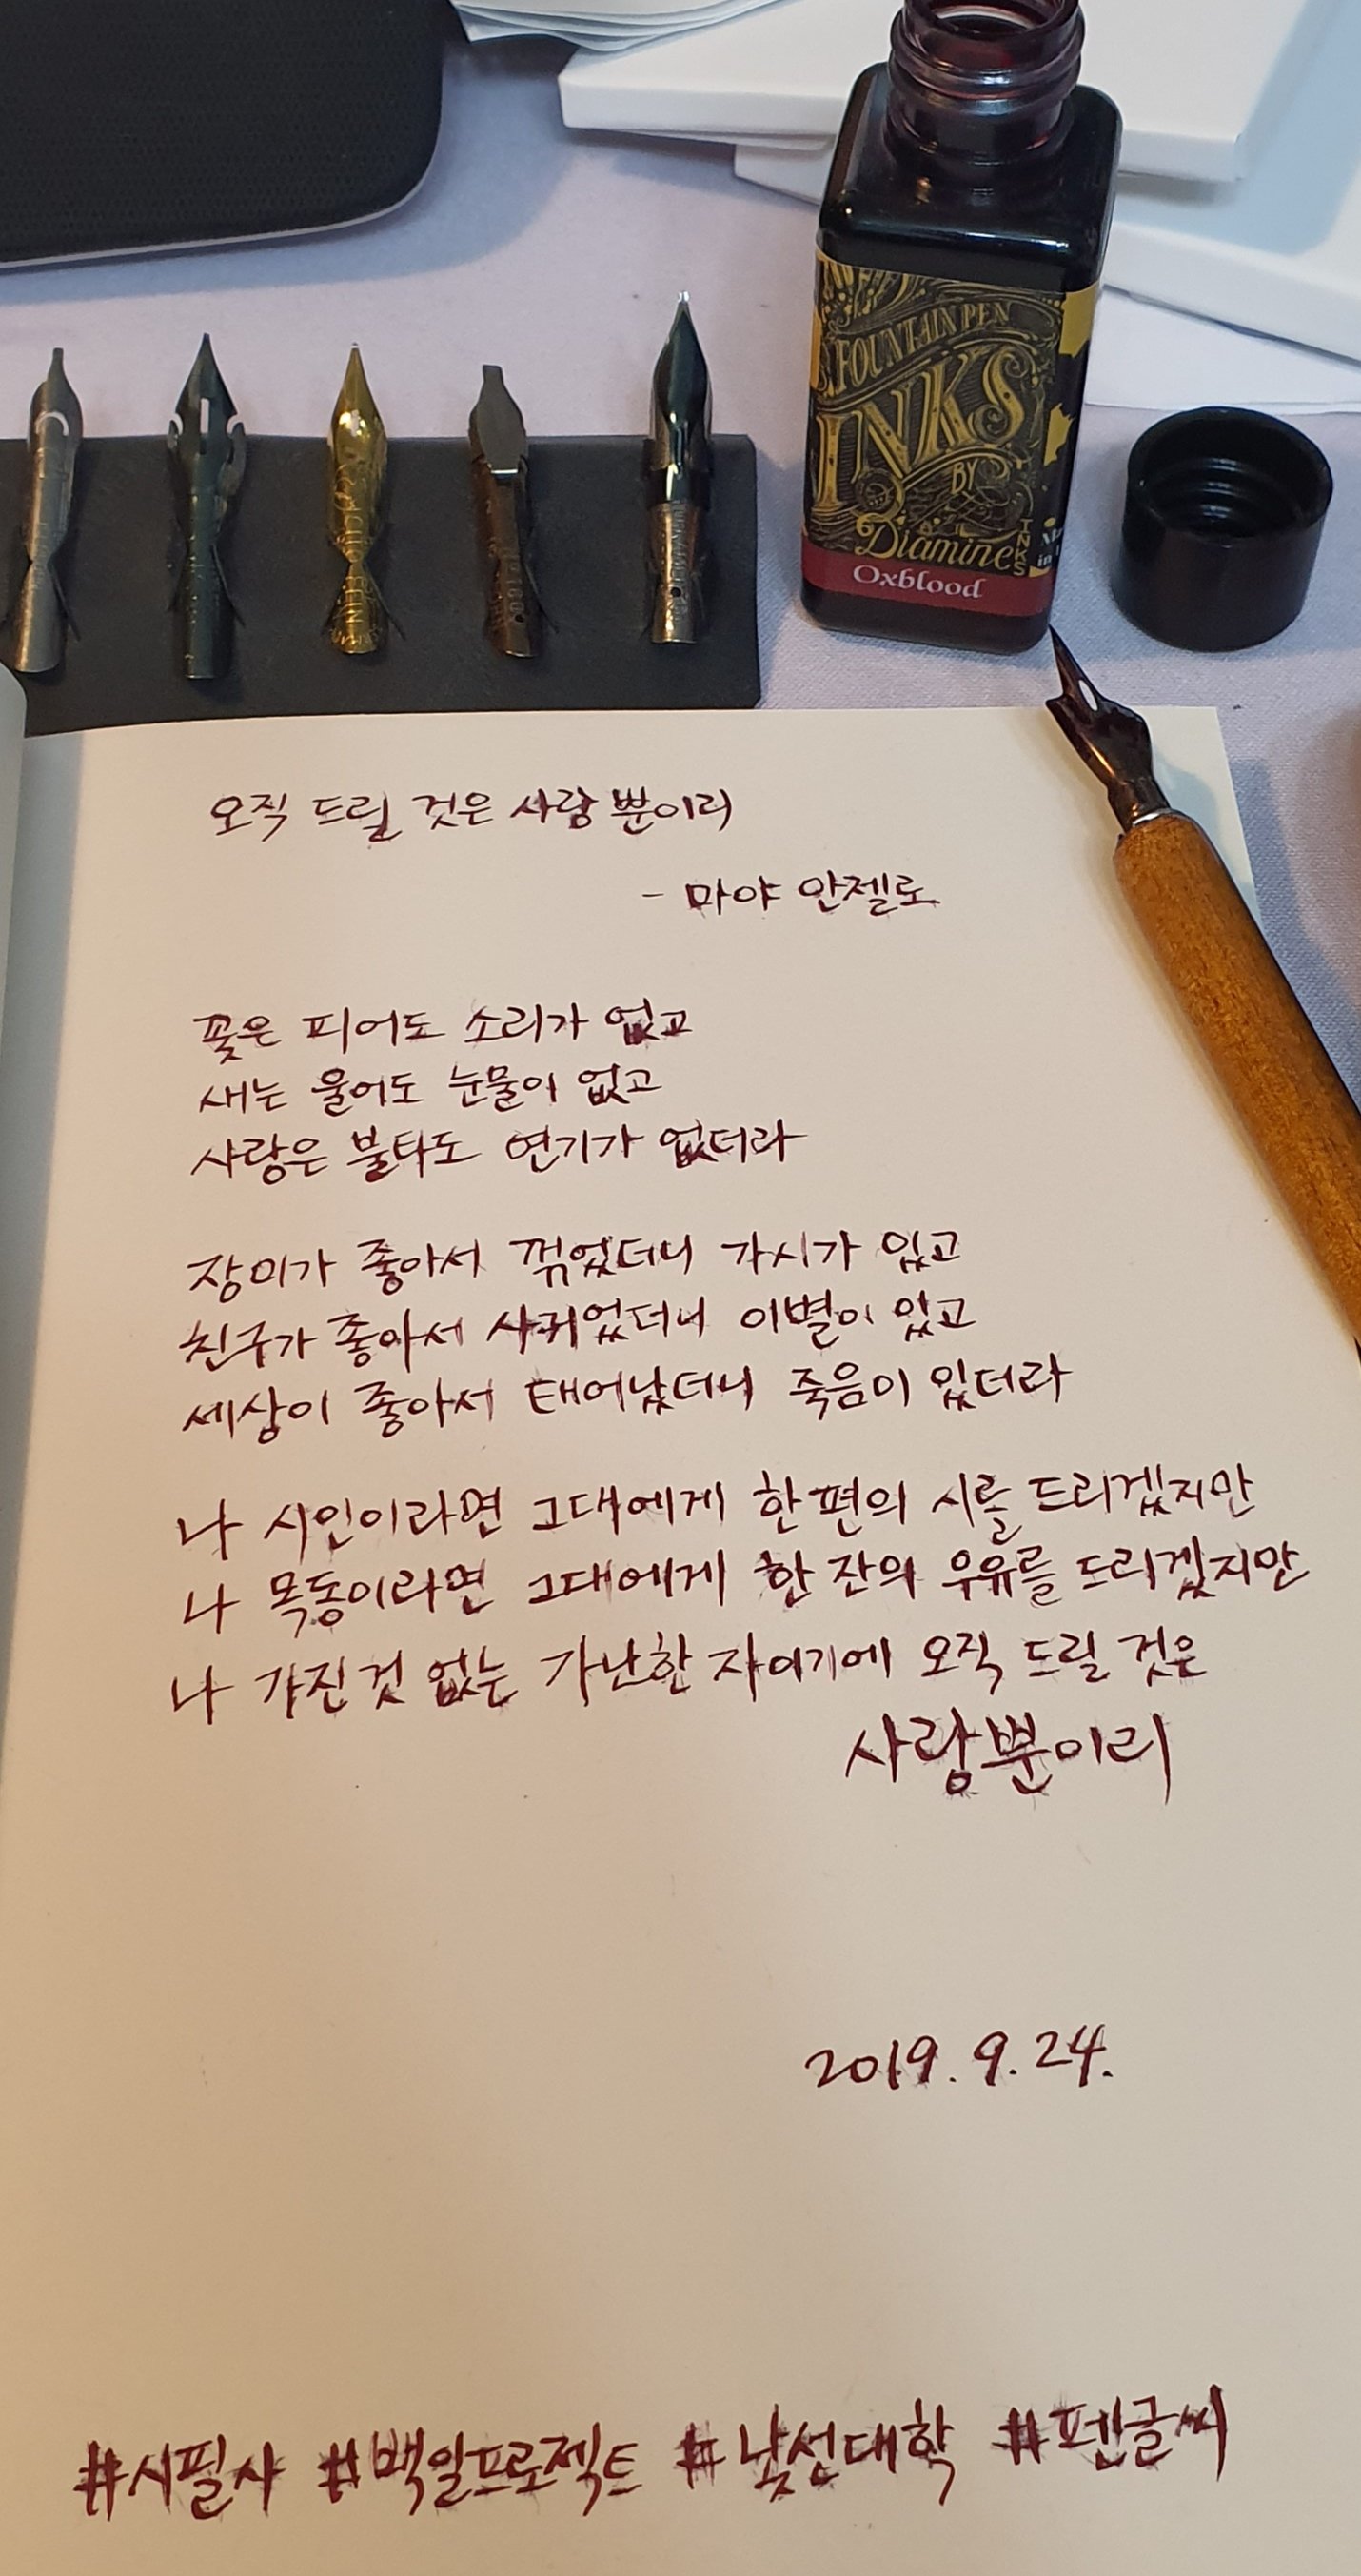 FOUNTAIN PEN
INKS
BY
Diamine
INKS
Oxblood
오직 드릴 것은 사랑뿐이리
- 마야 안젤로
꽃은 피어도 소리가 없고
새는 울어도 눈물이 없고
사랑은 불타도 연기가 없더라
장미가 좋아서 꺾었더니 가시가 있고
친구가 좋아서 사귀었더니 이별이 있고
세상이 좋아서 태어났더니 죽음이 있더라
나 시인이라면 그대에게 한편의 시를 드리겠지만
나 목동이라면 그대에게 한 잔의 우유를 드리겠지만
나 가진것 없는 가난한 자이기에 오직 드릴 것은
사랑뿐이리
2019. 9. 24.
#시필사 #백일프로젝트 #낯선대학 #펜글씨